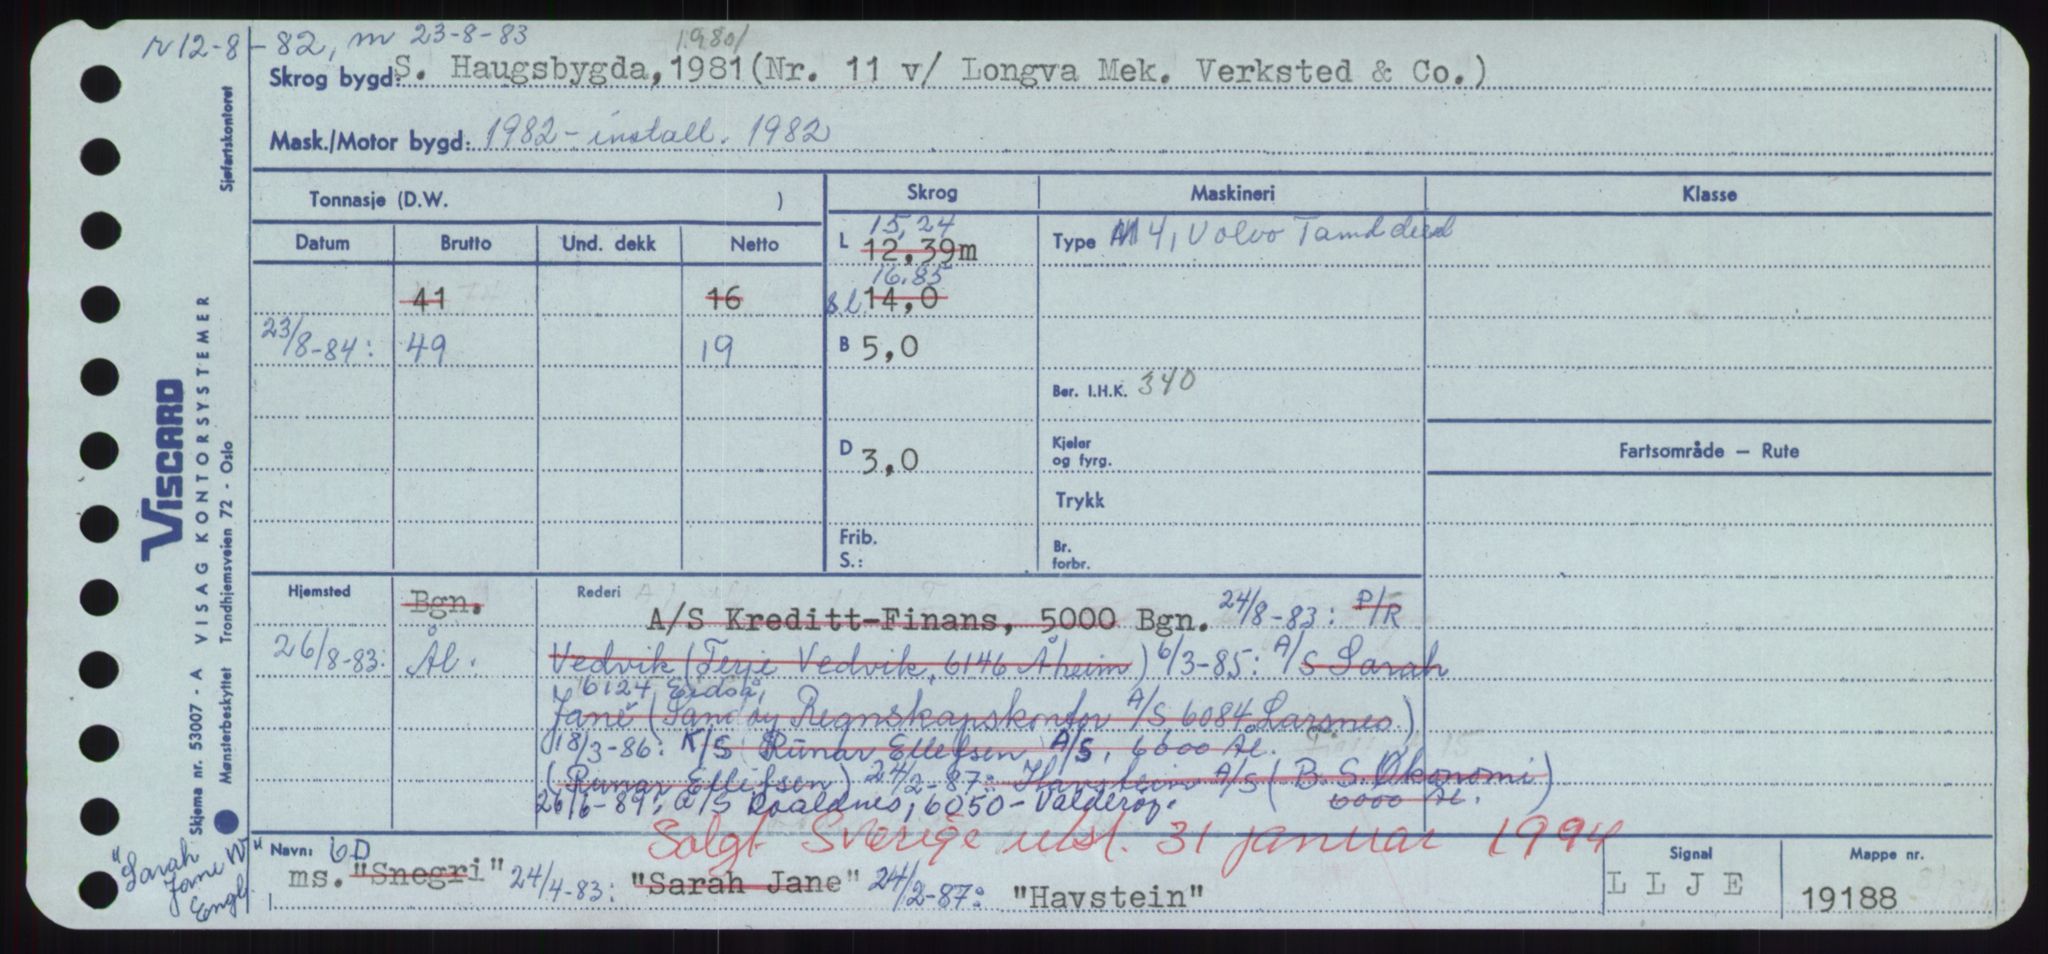 r 12-8-82, m 23-8-83
1980/
Skrog bygd: S. Haugsbygda, 1981 (Nr. 11 v/ Longva Mek. Verksted & Co.)
Mask./Motor bygd: 1982 - install. 1982
Tonnasje (D.W. )
Skrog
Maskineri
Klasse
Datum
Brutto
Und. dekk
Netto
15,24
L 12,39m
Type M 4, Volvo Tamd diesel
41
16
16.85
8 l 14,0
23/8-84:
49
19
B 5,0
Ber. I.H.K. 340
D 3,0
Kjeler
og fyrg.
Fartsområde — Rute
Trykk
Frib.
S.:
Br.
forbr.
Hjemsted
Bgn.
Rederi
A/S Kreditt-Finans, 5000 Bgn. 24/8-83: P/R
26/8-83:
Ål.
Vedvik (Terje Vedvik, 6146 Åheim) 6/3-85: A/S Sarah
6124 Eidså,
Jane (Sandøy Regnskapskontor A/S 6084 Larsnes.)
18/3-86: K/S Runar Ellefsen A/S, 6600 Ål.
(Runar Ellefsen) 24/2-87: Havstein A/S (B.S. Økonomi)
6000 Ål.
26/6-89: A/S Roaldnes, 6050 - Valderøy.
Solgt Sverige utsl. 31 januar 1994
Navn: 6D
ms. "Snegri" 24/4-83: "Sarah Jane" 24/2-87: "Havstein"
Signal
L L J E
Mappe nr.
19188
"Sarah
Jane W"
Engl.
Sjøfartskontoret
VISCARD
VISAG KONTORSYSTEMER
Trondhjemsveien 72 - Oslo
Skjema nr. 53007 - A
Mønsterbeskyttet